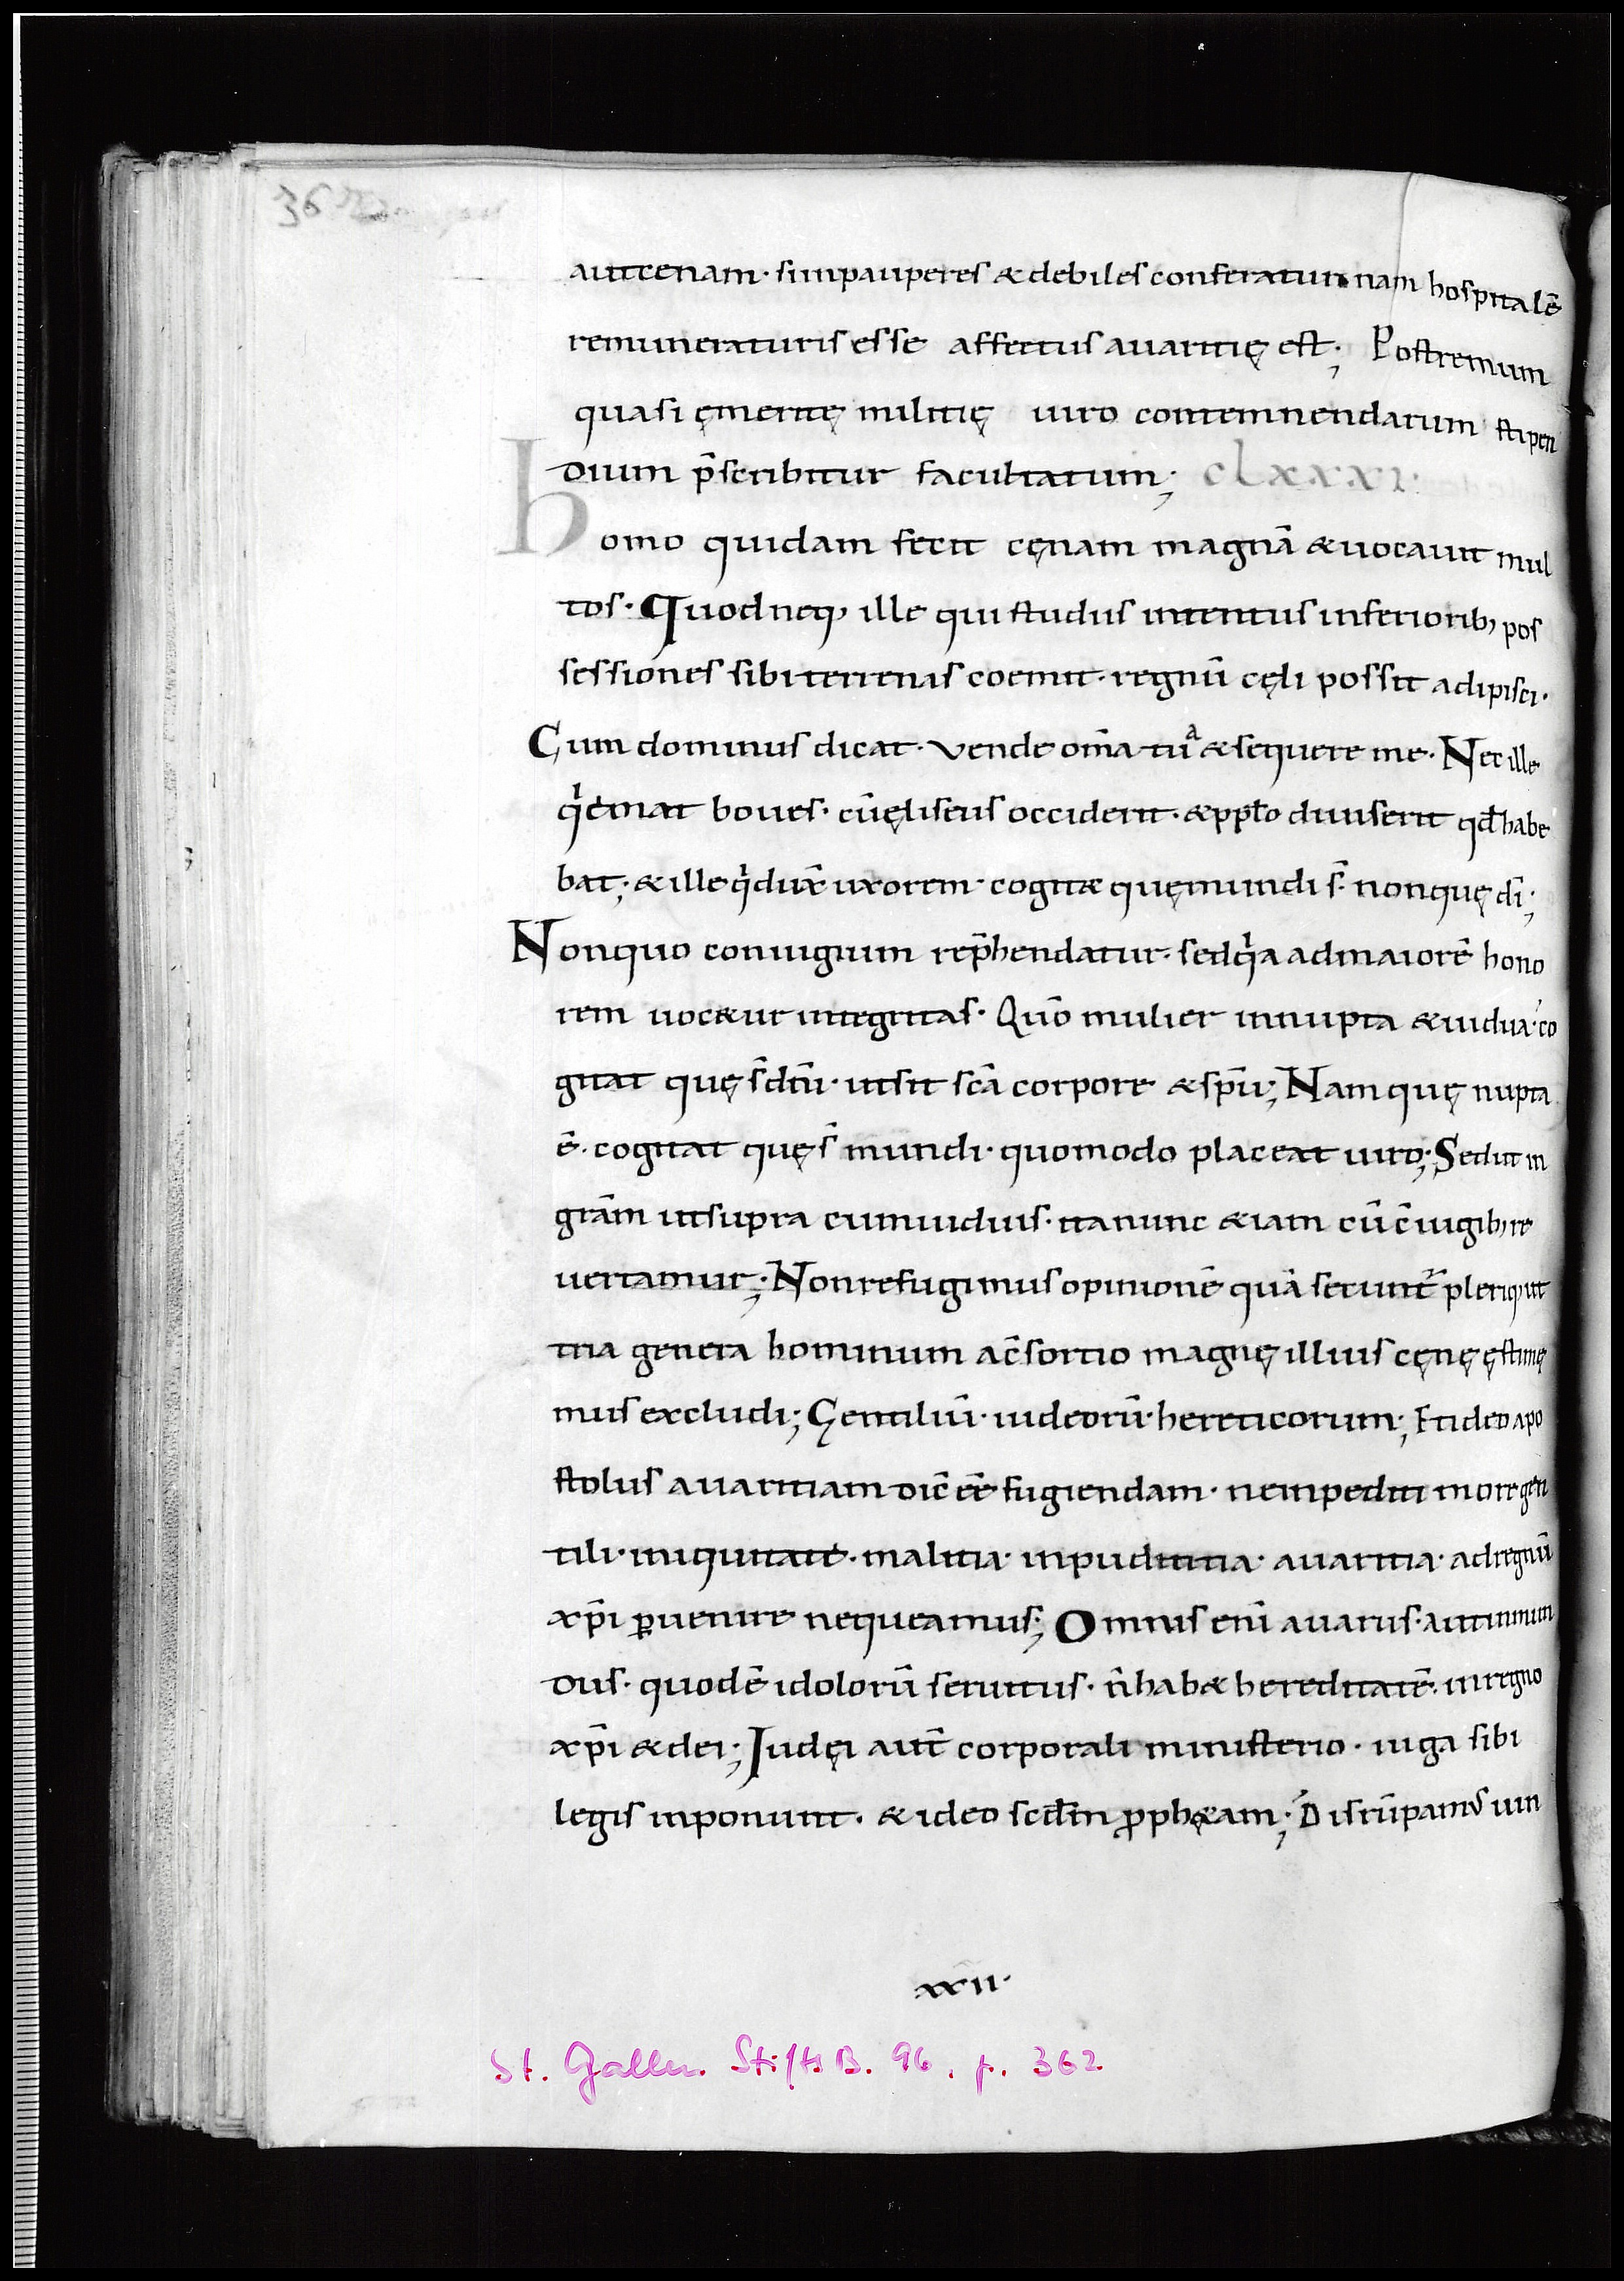 362
aut cenam· si inpauperes & debiles conferatur nam hospitalē
remuneraturis esse affectus auaritię est; Postremum
quasi ęmeritę militię uiro contemnendarum stipen
dium p̄scribitur facultatum; clxxxi·
Homo quidam fecit cęnam magnā & uocauit mul
tos· Quod neq; ille qui studiis intentus inferiorib; pos
sessiones sibi terrenas coemit· regnū cęli possit adipisci·
Cum dominus dicat· vende om̄a tua & sequere me· Nec ille
qi emat boues· cū ęliseus occiderit· & pplo diuiserit qd habe
bat; & ille qi dux̄ uxorem· cogit& quę mundi s̄· non quę dī;
Non quo coniugium rep̄hendatur· sed qia ad maiorē hono
rem uoc&ur integritas· Quō mulier innupta & uidua· co
gitat quę s̄ dn̄i· ut sit scā corpore & spū; Nam quę nupta
ē· cogitat quę s̄ mundi· quomodo placeat uiro; Sed ut in
grām ut supra cum uiduis· ita nunc & iam cū c̄iugib; re
uertamur; Non refugimus opinionē quā secunt̄ pleriq; ut
tria genera hominum a c̄sortio magnę illius cęnę ęstime
mus excludi; Gentiliū· iudeorū· hereticorum; Et ideo apo
stolus auaritiam dic̄ ēē fugiendam· nempediti more gen
tili· iniquitate· malitia· inpudicitia· auaritia· ad regnū
xp̄i puenire nequeamus; Omnis enī auarus· aut inmun
dus· quod ē idolorū seruitus· n̄ hab& hereditatē· in regno
xp̄i & dei; Iudęi aut̄ corporali ministerio· iuga sibi
legis inponunt· & ideo scdm proph&am; Disrūpamus uin
xxii·
St. Gallen. StiftsB. 96, p. 362